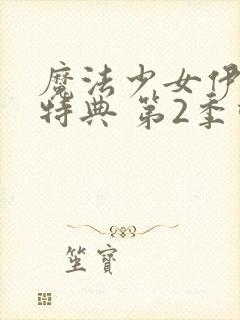 魔法少女伊
特典 第2季
坐寶